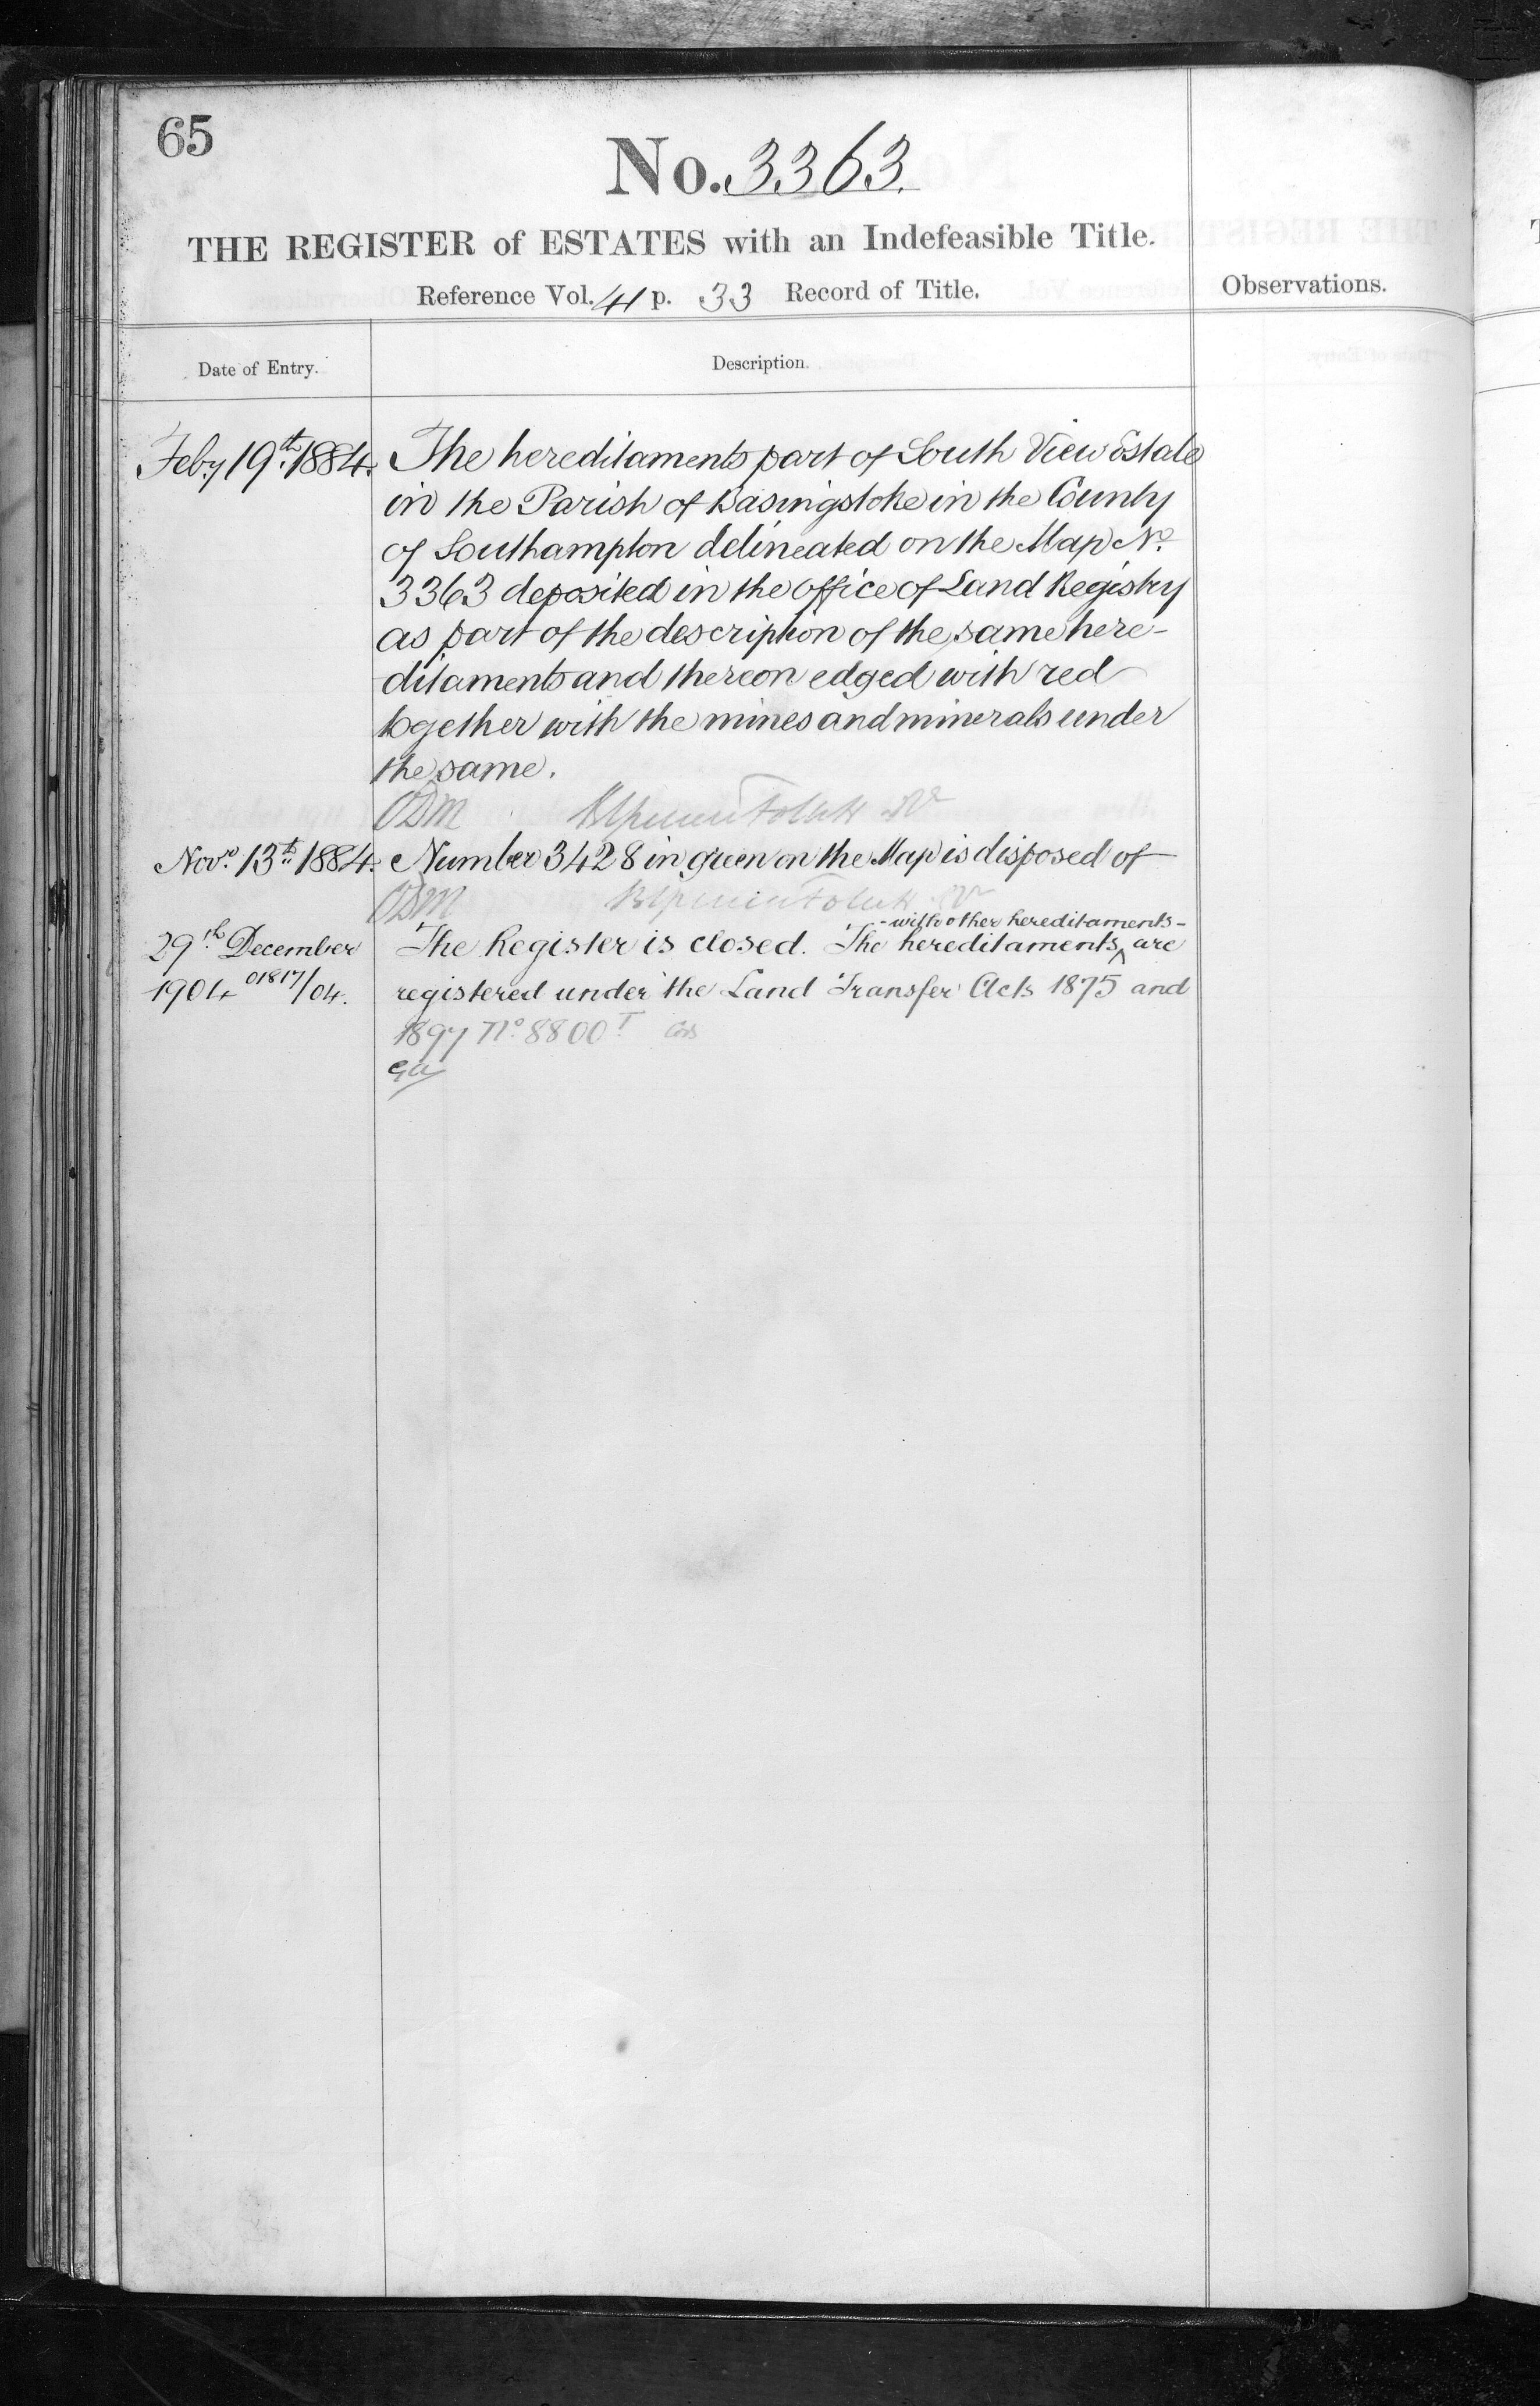 65
No. 3363.
THE REGISTER of ESTATES with an Indefeasible Title.
Reference Vol. 41 p. 33 Record of Title.
Observations.
Date of Entry.
Description.
Feby 19th 1884. The hereditaments part of South View Estate
in the Parish of Basingstoke in the County
of Southampton delineated on the Map No.
3363 deposited in the office of Land Registry
as part of the description of the same here-
ditaments and thereon edged with red
together with the mines and minerals under
the same.
Novr. 13th 1884. Number 3428 in green on the Map is disposed of
- with other hereditaments -
29th December The Register is closed. The hereditaments ^ are
1904 01817/04. registered under the Land Transfer Acts 1875 and
1897 No 8800 T